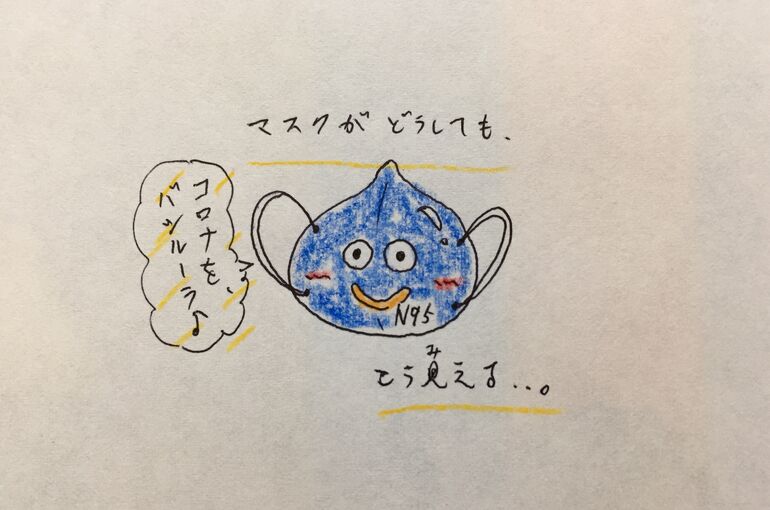 マスクがどうしても、
コロナを
バシルーラ♪
N95
こう見える...。
み